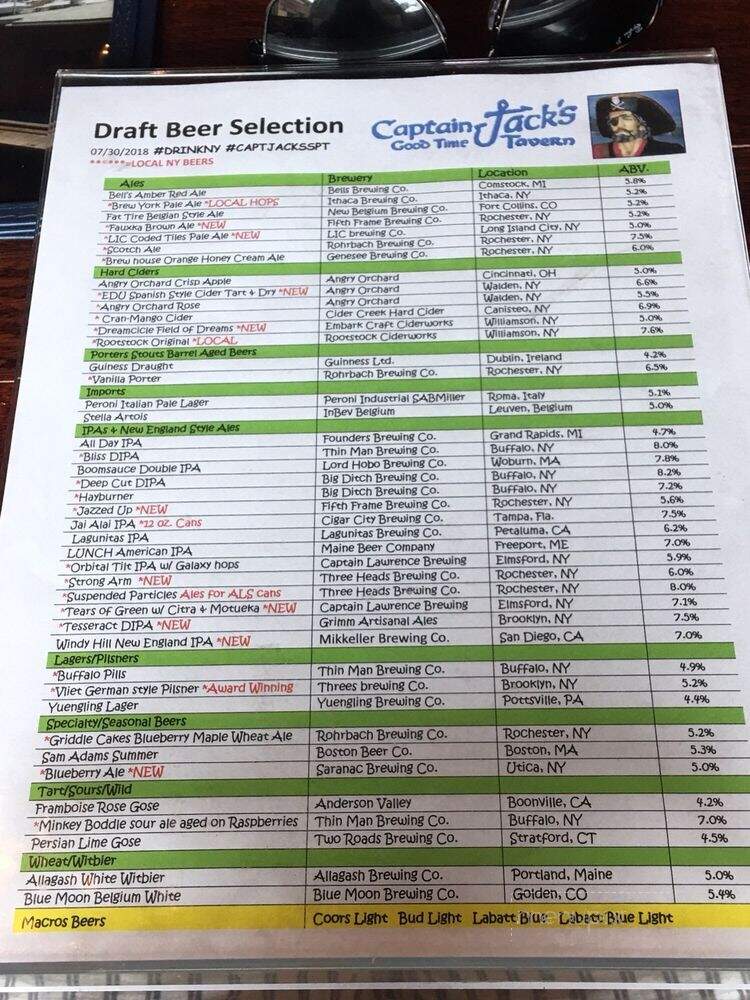 Draft Beer Selection
07/30/2018 #DRINKNY #CAPTJACKSSPT
******=LOCAL NY BEERS
Captain Jack's
Good Time Tavern
Ales Brewery Location ABV.
Bell's Amber Red Ale Bells Brewing Co. Comstock, MI 5.8%
*Brew York Pale Ale *LOCAL HOPS Ithaca Brewing Co. Ithaca, NY 5.2%
Fat Tire Belgian Style Ale New Belgium Brewing Co. Fort Collins, CO 5.2%
*Fauxka Brown Ale *NEW Fifth Frame Brewing Co. Rochester, NY 5.2%
*LIC Coded Tiles Pale Ale *NEW LIC brewing Co. Long Island City, NY 5.0%
*Scotch Ale Rohrbach Brewing Co. Rochester, NY 7.5%
*Brew house Orange Honey Cream Ale Genesee Brewing Co. Rochester, NY 6.0%
Hard Ciders
Angry Orchard Crisp Apple Angry Orchard Cincinnati, OH 5.0%
*EDU Spanish Style Cider Tart & Dry *NEW Angry Orchard Walden, NY 6.6%
*Angry Orchard Rose Angry Orchard Walden, NY 5.5%
* Cran-Mango Cider Cider Creek Hard Cider Canisteo, NY 6.9%
*Dreamcicle Field of Dreams *NEW Embark Craft Ciderworks Williamson, NY 5.0%
*Rootstock Original *LOCAL Rootstock Ciderworks Williamson, NY 7.6%
Porters Stouts Barrel Aged Beers
Guiness Draught Guinness Ltd. Dublin, Ireland 4.2%
*Vanilla Porter Rohrbach Brewing Co. Rochester, NY 6.5%
Imports
Peroni Italian Pale Lager Peroni Industrial SABMiller Roma, Italy 5.1%
Stella Artois InBev Belgium Leuven, Belgium 5.0%
IPAs & New England Style Ales
All Day IPA Founders Brewing Co. Grand Rapids, MI 4.7%
*Bliss DIPA Thin Man Brewing Co. Buffalo, NY 8.0%
Boomsauce Double IPA Lord Hobo Brewing Co. Woburn, MA 7.8%
*Deep Cut DIPA Big Ditch Brewing Co. Buffalo, NY 8.2%
*Hayburner Big Ditch Brewing Co. Buffalo, NY 7.2%
*Jazzed Up *NEW Fifth Frame Brewing Co. Rochester, NY 5.6%
Jai Alai IPA *12 oz. Cans Cigar City Brewing Co. Tampa, Fla. 7.5%
Lagunitas IPA Lagunitas Brewing Co. Petaluma, CA 6.2%
LUNCH American IPA Maine Beer Company Freeport, ME 7.0%
*Orbital Tilt IPA w/ Galaxy hops Captain Lawrence Brewing Elmsford, NY 5.9%
*Strong Arm *NEW Three Heads Brewing Co. Rochester, NY 6.0%
*Suspended Particles Ales for ALS cans Three Heads Brewing Co. Rochester, NY 8.0%
*Tears of Green w/ Citra & Motueka *NEW Captain Lawrence Brewing Elmsford, NY 7.1%
*Tesseract DIPA *NEW Grimm Artisanal Ales Brooklyn, NY 7.5%
Windy Hill New England IPA *NEW Mikkeller Brewing Co. San Diego, CA 7.0%
Lagers/Pilsners
*Buffalo Pills Thin Man Brewing Co. Buffalo, NY 4.9%
*Vliet German style Pilsner *Award Winning Threes brewing Co. Brooklyn, NY 5.2%
Yuengling Lager Yuengling Brewing Co. Pottsville, PA 4.4%
Specialty/Seasonal Beers
*Griddle Cakes Blueberry Maple Wheat Ale Rohrbach Brewing Co. Rochester, NY 5.2%
Sam Adams Summer Boston Beer Co. Boston, MA 5.3%
*Blueberry Ale *NEW Saranac Brewing Co. Utica, NY 5.0%
Tart/Sours/Wild
Framboise Rose Gose Anderson Valley Boonville, CA 4.2%
*Minkey Boddle sour ale aged on Raspberries Thin Man Brewing Co. Buffalo, NY 7.0%
Persian Lime Gose Two Roads Brewing Co. Stratford, CT 4.5%
Wheat/Witbier
Allagash White Witbier Allagash Brewing Co. Portland, Maine 5.0%
Blue Moon Belgium White Blue Moon Brewing Co. Golden, CO 5.4%
Macros Beers Coors Light Bud Light Labatt Blue Labatt Blue Light